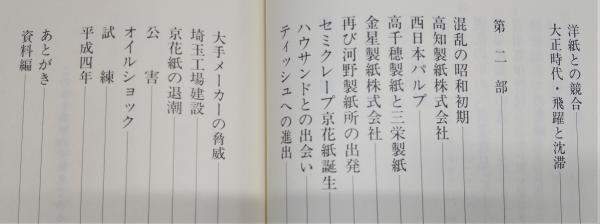 洋紙との競合
大正時代・飛躍と沈滞
第二部
混乱の昭和初期
高知製紙株式会社
西日本パルプ
高千穂製紙と三栄製紙
金星製紙株式会社
再び河野製紙所の出発
セミクレープ京花紙誕生
ハウサンドとの出会い
ティッシュへの進出
大手メーカーの脅威
埼玉工場建設
京花紙の退潮
公害
オイルショック
試練
平成四年
あとがき
資料編